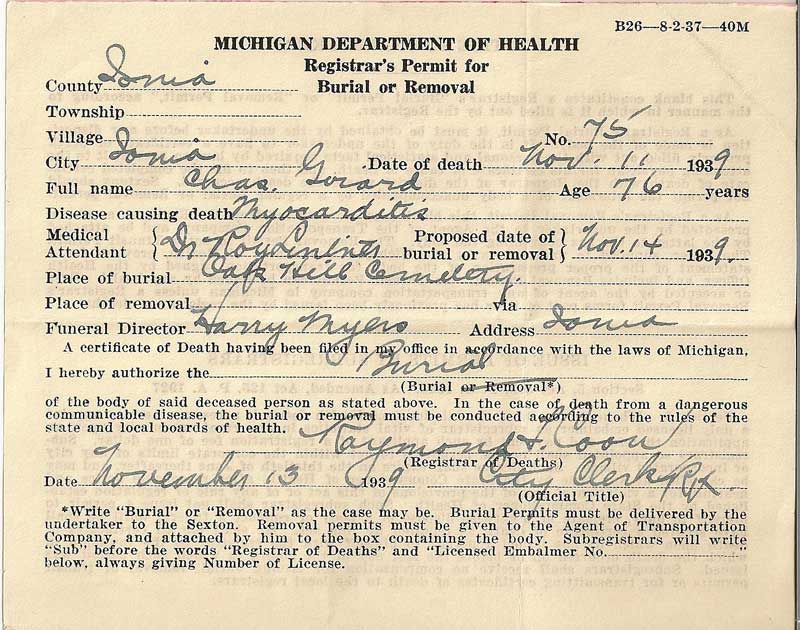 B26—8-2-37—40M
MICHIGAN DEPARTMENT OF HEALTH
Registrar's Permit for
Burial or Removal
County Ionia
Township
Village No. 75
City Ionia Date of death Nov. 11 1939
Full name Chas. Gerard Age 76 years
Disease causing death Myocarditis
Medical Attendant { Dr Roy Proposed date of burial or removal } Nov. 14 1939.
Place of burial Oak Hill Cemetery.
Place of removal via
Funeral Director Harry Myers Address Ionia
A certificate of Death having been filed in my office in accordance with the laws of Michigan,
I hereby authorize the Burial
(Burial or Removal*)
of the body of said deceased person as stated above. In the case of death from a dangerous
communicable disease, the burial or removal must be conducted according to the rules of the
state and local boards of health.
Raymond F. Coon
(Registrar of Deaths)
Date November 13 1939 City Clerk
(Official Title)
*Write "Burial" or "Removal" as the case may be. Burial Permits must be delivered by the
undertaker to the Sexton. Removal permits must be given to the Agent of Transportation
Company, and attached by him to the box containing the body. Subregistrars will write
"Sub" before the words "Registrar of Deaths" and "Licensed Embalmer No. "
below, always giving Number of License.